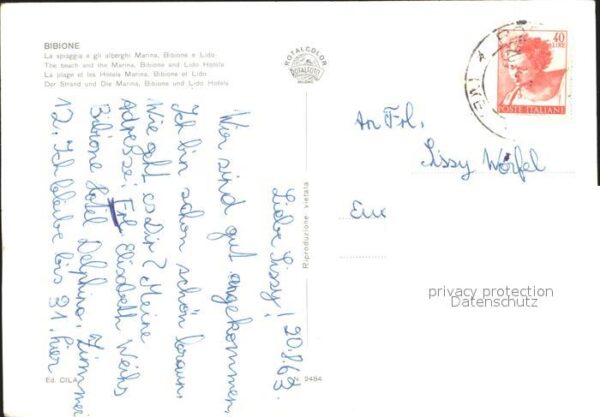 BIBIONE
La spiaggia e gli alberghi Marina, Bibione e Lido
The beach and the Marina, Bibione and Lido Hotels
La plage et les Hotels Marina, Bibione et Lido
Der Strand und Die Marina, Bibione und Lido Hotels
ROTALCOLOR
ROTALFOTO
MILANO
40
LIRE
POSTE ITALIANE
20.8.63
Liebe Lissy!
Wir sind gut angekommen,
Ich bin schon schön braun.
Wie geht es Dir? Meine
Adresse: Frl. Elisabeth Weihs
Bibione Hotel Delphino, Zimmer
12. Ich bleibe bis 31. hier
An Frl.
Lissy Wörfel
privacy protection
Datenschutz
Riproduzione vietata
Ed. CILA
N. 9484